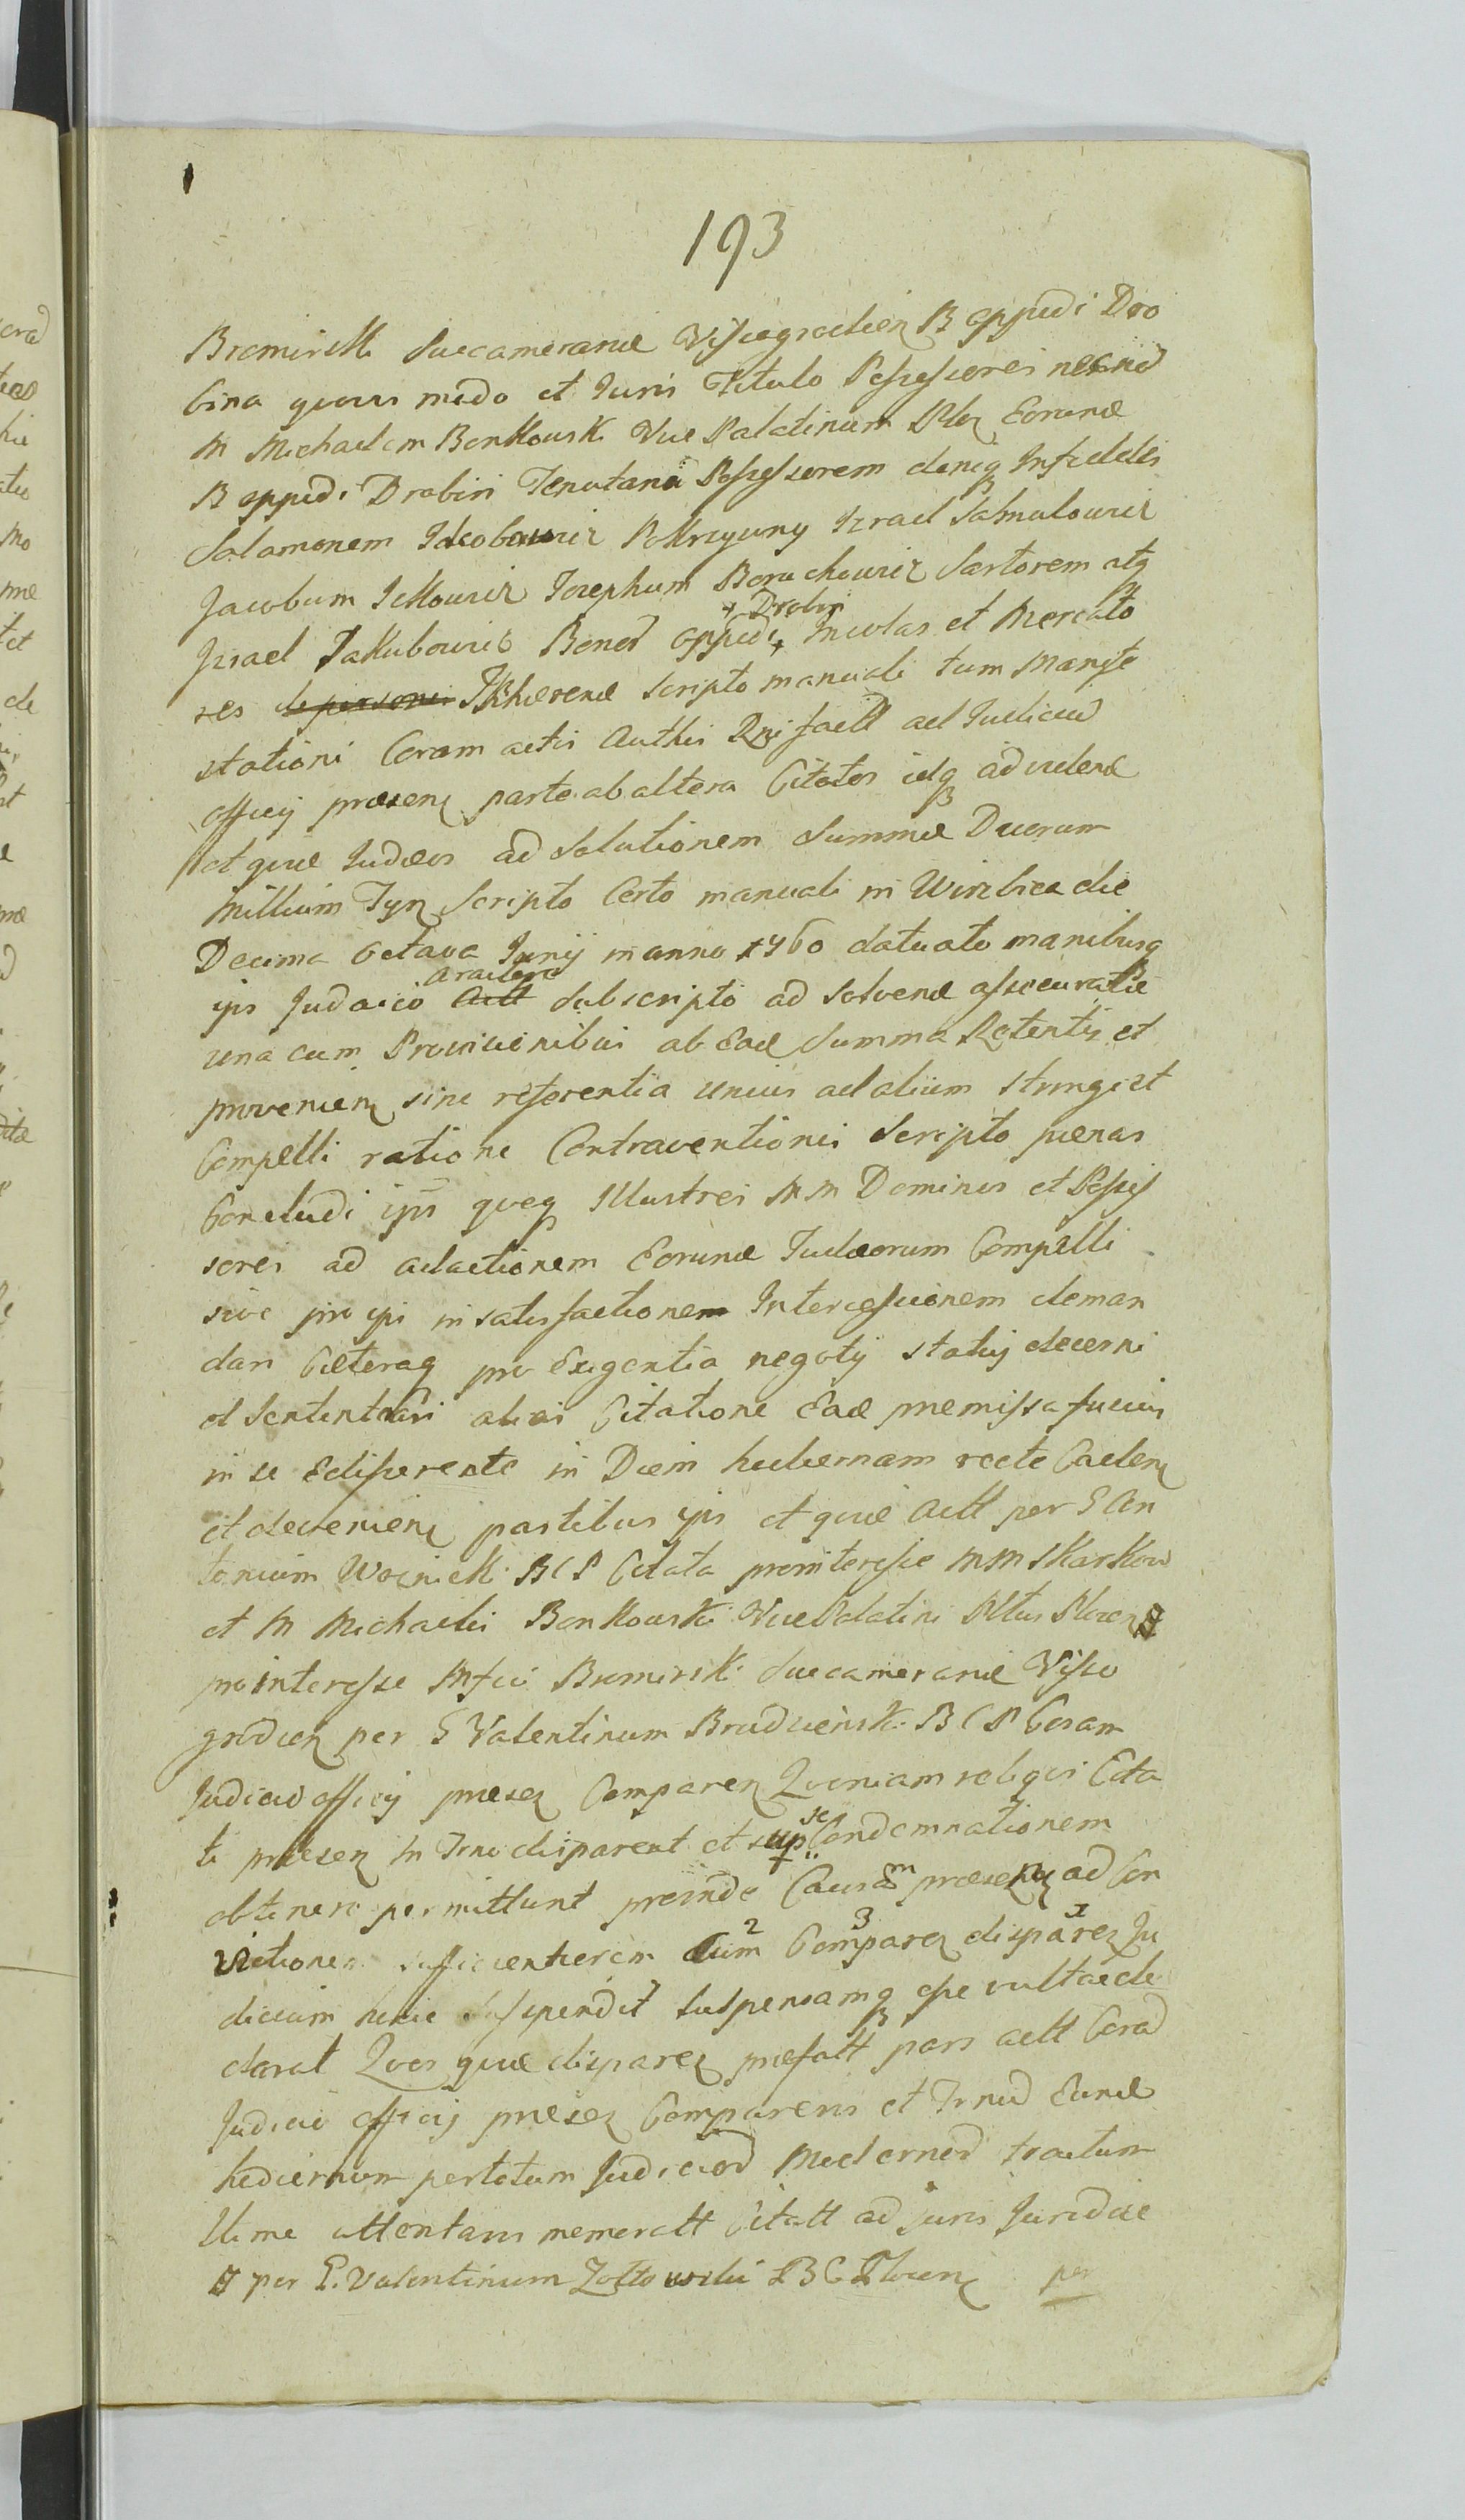 193
Bromirski Succamerarae Vissegradien B oppidi Dro
bina quovis modo et Juris Titulo Possessores necnod
M Michaelem Bonkowski Vice Palatinum Ploc Eorund
B oppidi Drobin Tenutariu Possessorem deniq Infideles
Salamonem Jacobowicz Pokrzywny Izrael Salmulowicz
Jacobum Ickowicz Josephum Boruchowicz Sartorem atq
Izrael Jakubowicz Bonor oppidi + Drobin Incolas et Mercato
res scripto manuali tum Manife
stationi Coram actis Authen facta ad Judiciu
officij praesen parte ab altera Citatos idq ad videnđ
et quia Judaeos ad Solutionem Summae Duorum
Millium Tyn Scripto Certo manuali in Wirzbica die
Decima Octava Junij in anno 1760 datuato manibusq
ips Judaico aractere Subscripto ad Solvend assecuratae
una cum Provisionibus ab Ead Summa Retentis et
provenien sine referentia unius ad alium Stringi et
Compelli ratione Contraventionis Scripto poenas
Concludi ips quoq Illustres MM Dominos et Posses
sores ad adactionem Eorund Judaeorum Compelli
sive pro ips in satisfactionem Intercessionem deman
dari Caeteraq pro Exigentia negotij statuj decerni
et Sententiari alias Citatione Ead premissa fusius
in se Edisserente in Diem hodiernam recte Caden
et devenien partibus ips et quid Actt per G An
tonium Woznicki B C P Citata pro interesse MM Skarkow
et M Michaelis Bonkowski Vice Palatini Pltus Plocen #
pro interesse Mfci Bromirski Succamerarid Visso
gradien per G Valentinum Brudzienski B C P Coram
Judicio officij presen Comparen Quoniam reliqui Cita
ti presen in Trno disparent et sup se Condemnationem
obtinere permittunt proinde Causam praesen ad Con
victionem sufficientiorem Cum 2 Comparen 3 disparen 1 Ju
dicium hocce Suspendit Suspensamq esse vult ac de
clarat Quos quid disparen praefatt pars actt Corad
Judicio officij presen Comparens et Trnud Eund
hodiernum per totum Judiciod Modernod tractum
ltime attentans memoratt Citatt ad juris Juridice
# per G. Valentinum Zołtowski B C Plocen per